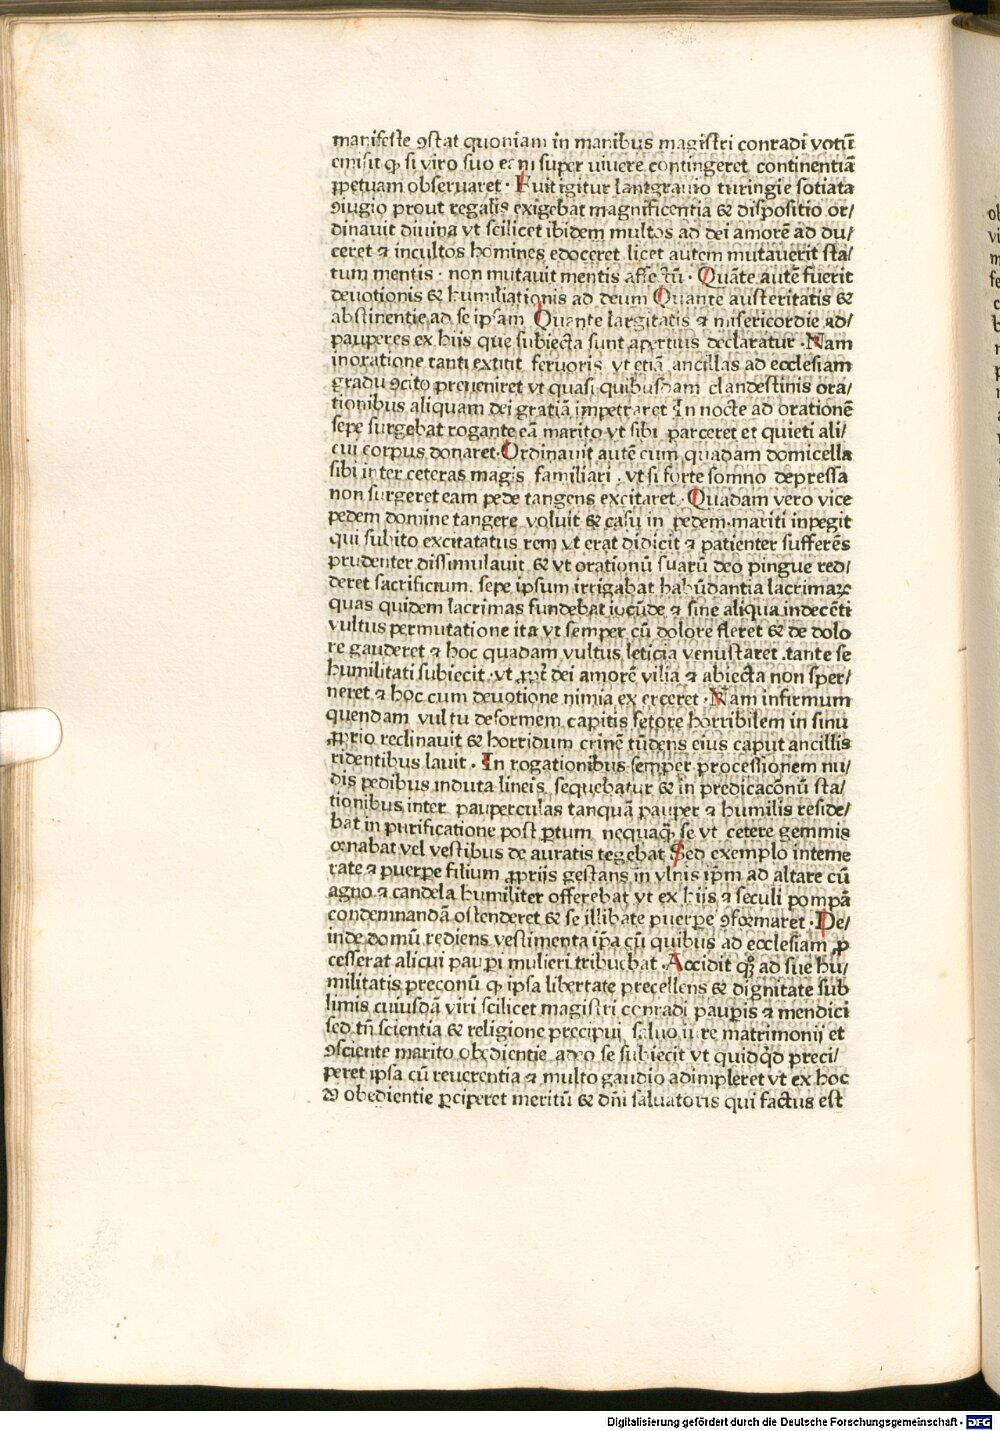 manifeste ꝯstat quoniam in manibus magistri conradi votū
emisit ꝙ si viro suo eam super viuere contingeret continentiā
ꝑpetuam obseruaret · Fuit igitur lantgrauio turingie sotiata
ꝯiugio prout regalis exigebat magnificentia & dispositio or/
dinauit diuina vt scilicet ibidem multos ad dei amorē ad du/
ceret ⁊ incultos homines edoceret licet autem mutauerit sta/
tum mentis · non mutauit mentis affectū · Quāte autē fuerit
deuotionis & humiliationis ad deum Quante austeritatis &
abstinentie ad se ipsam Quante largitatis ⁊ misericordie ad/
pauperes ex hiis que subiecta sunt apertius declaratur · Nam
in oratione tanti extitit feruoris vt etiā ancillas ad ecclesiam
gradu ꝯcito preueniret vt quasi quibusdam clandestinis ora/
tionibus aliquam dei gratiā impetraret In nocte ad orationē
sepe surgebat rogante eā marito vt sibi parceret et quieti ali/
cui corpus donaret · Ordinauit autē cum quadam domicella
sibi inter ceteras magis familiari . vt si forte somno depressa
non surgeret eam pede tangens excitaret · Quadam vero vice
pedem domine tangere voluit & casu in pedem mariti inpegit
qui subito excitatatus rem vt erat didicit ⁊ patienter sufferēs
prudenter dissimulauit & vt orationū suarū deo pingue red/
deret sacrificium . sepe ipsum irrigabat habūdantia lacrimaꝝ
quas quidem lacrimas fundebat iocūde ⁊ sine aliqua indecēti
vultus permutatione ita vt semper cū dolore fleret & de dolo
re gauderet ⁊ hoc quadam vultus leticia venustaret . tante se
humilitati subiecit · vt ꝓpt̄ dei amorē vilia ⁊ abiecta non sper/
neret ⁊ hoc cum deuotione nimia ex erceret · Nam infirmum
quendam vultu deformem capitis fetore horribilem in sinu
ꝓprio reclinauit & horridum crinē tūdens eius caput ancillis
ridentibus lauit · In rogationibus semper processionem nu/
dis pedibus induta lineis sequebatur & in predicacōnū sta/
tionibus inter pauperculas tanquā pauper ⁊ humilis reside/
bat in purificatione post ꝑtum nequaꝙ̄ se vt cetere gemmis
ornabat vel vestibus de auratis tegebat Sed exemplo inteme
rate ⁊ puerpe filium ꝓprijs gestans in vlnis ip̄m ad altare cū
agno ⁊ candela humiliter offerebat vt ex hijs ⁊ seculi pompā
condemnandā ostenderet & se illibate puerpe ꝯformaret · De/
inde domū rediens vestimenta ip̄a cū quibus ad ecclesiam ꝓ
cesserat alicui pauꝑi mulieri tribuebat . Accidit qꝫ ad sue hu/
militatis preconū ꝙ ipsa libertate precellens & dignitate sub
limis cuiusdā viri scilicet magistri conradi pauꝑis ⁊ mendici
sed tn̄ scientia & religione precipui saluo iure matrimonij et
ꝯsciente marito obedientie adeo se subiecit vt quidq̇d preci/
peret ipsa cū reuerentia ⁊ multo gaudio adimpleret vt ex hoc
obedientie ꝑciperet meritū & dn̄i saluatoris qui factus est
Digitalisierung gefördert durch die Deutsche Forschungsgemeinschaft - DFG